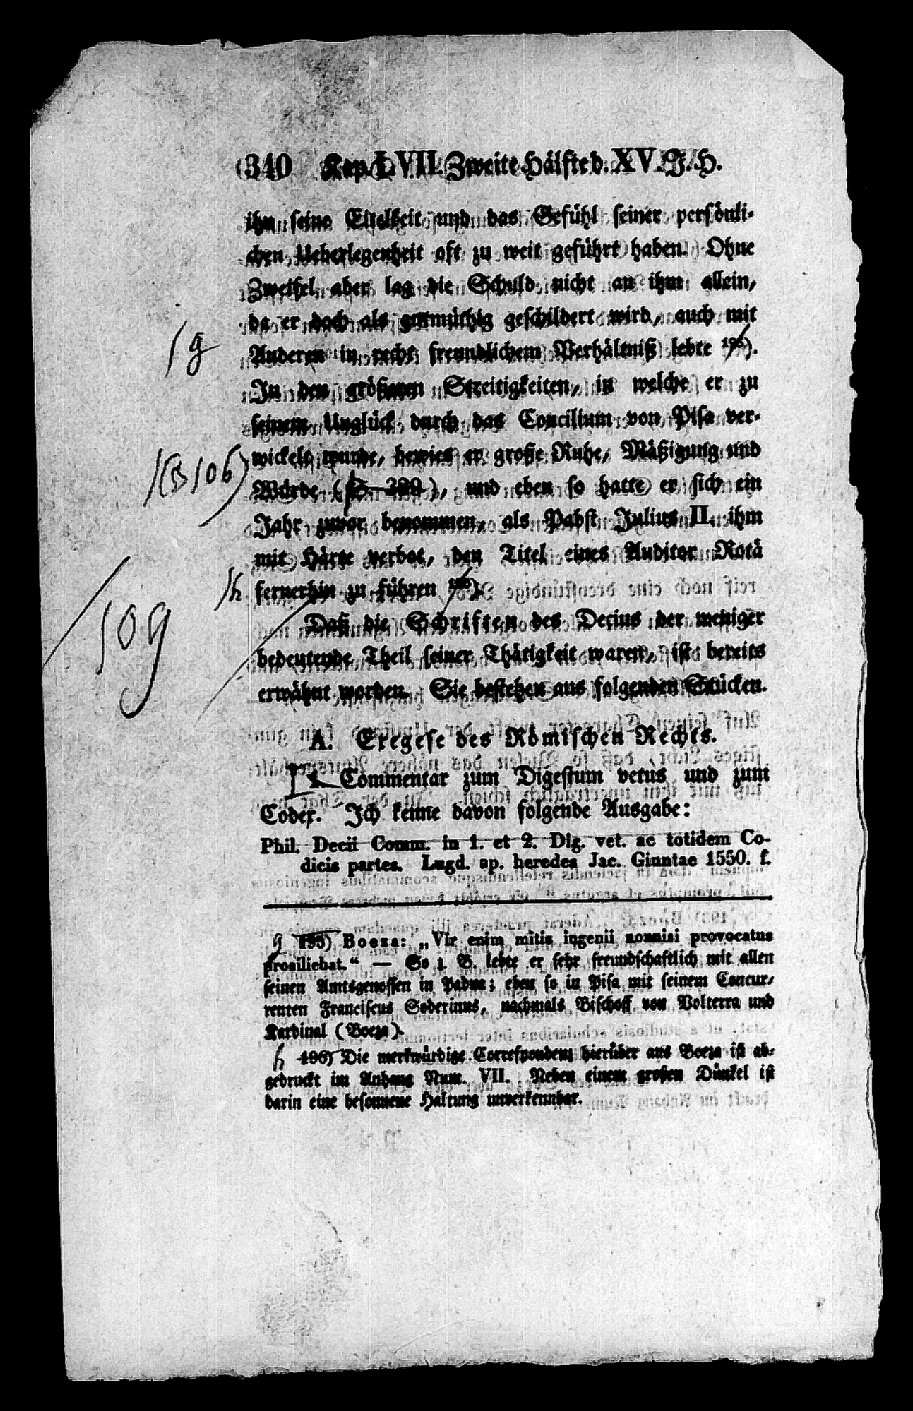 340 Kap. LVII. Zweite Hälfte d. XV. J. H.
ihn seine Eitelkeit und das Gefühl seiner persönli-
chen Ueberlegenheit oft zu weit geführt haben. Ohne
Zweifel aber lag die Schuld nicht an ihm allein,
da er doch als gutmüthig geschildert wird, auch mit
g
Anderen in recht freundlichem Verhältniß lebte 195).
In den größeren Streitigkeiten, in welche er zu
seinem Unglück durch das Concilium von Pisa ver-
wickelt wurde, bewies er große Ruhe, Mäßigung und
(B 106)
Würde (S. 320), und eben so hatte er sich ein
Jahr zuvor benommen, als Pabst Julius II. ihm
mit Härte verbot, den Titel eines Auditor Rotä
h
fernerhin zu führen 196).
109
Daß die Schriften des Decius der weniger
bedeutende Theil seiner Thätigkeit waren, ist bereits
erwähnt worden. Sie bestehen aus folgenden Stücken.
A. Exegese des Römischen Rechts.
I. Commentar zum Digestum vetus und zum
Codex. Ich kenne davon folgende Ausgabe:
Phil. Decii Comm. in 1. et 2. Dig. vet. ac totidem Co-
dicis partes. Lugd. ap. heredes Jac. Giuntae 1550. f.
g 195) Boeza: „Vir enim mitis ingenii nonnisi provocatus
prosiliebat.“ — So z. B. lebte er sehr freundschaftlich mit allen
seinen Amtsgenossen in Padua; eben so in Pisa mit seinem Concur-
renten Franciscus Soderinus, nachmals Bischoff von Volterra und
Kardinal (Boeza).
h 196) Die merkwürdige Correspondenz hierüber aus Boeza ist ab-
gedruckt im Anhang Num. VII. Neben einem großen Dünkel ist
darin eine besonnene Haltung unverkennbar.